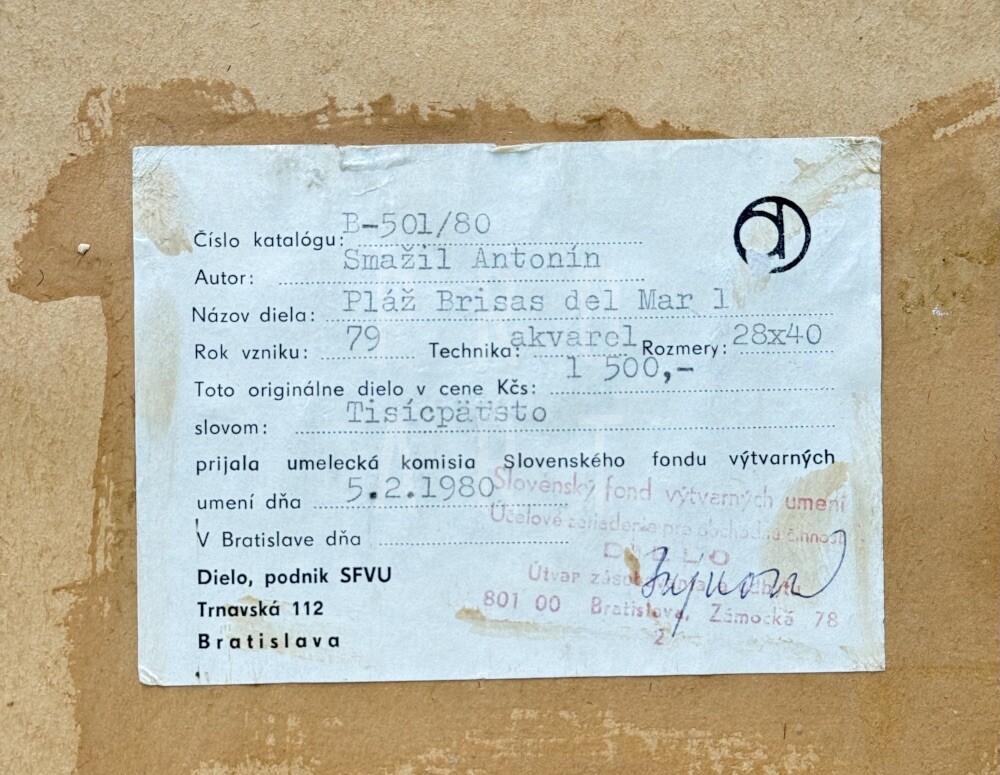 Číslo katalógu: B-501/80
Autor: Smažil Antonín
Názov diela: Pláž Brisas del Mar 1
Rok vzniku: 79 Technika: akvarel Rozmery: 28x40
Toto originálne dielo v cene Kčs: 1 500,-
slovom: Tisícpäťsto
prijala umelecká komisia Slovenského fondu výtvarných
umení dňa 5.2.1980
V Bratislave dňa
Dielo, podnik SFVU
Trnavská 112
Bratislava
Slovenský fond výtvarných umení
Účelové zariadenie pre obchodnú činnosť
DIELO
Útvar zásobovania a odbytu
801 00 Bratislava, Zámocká 78
2